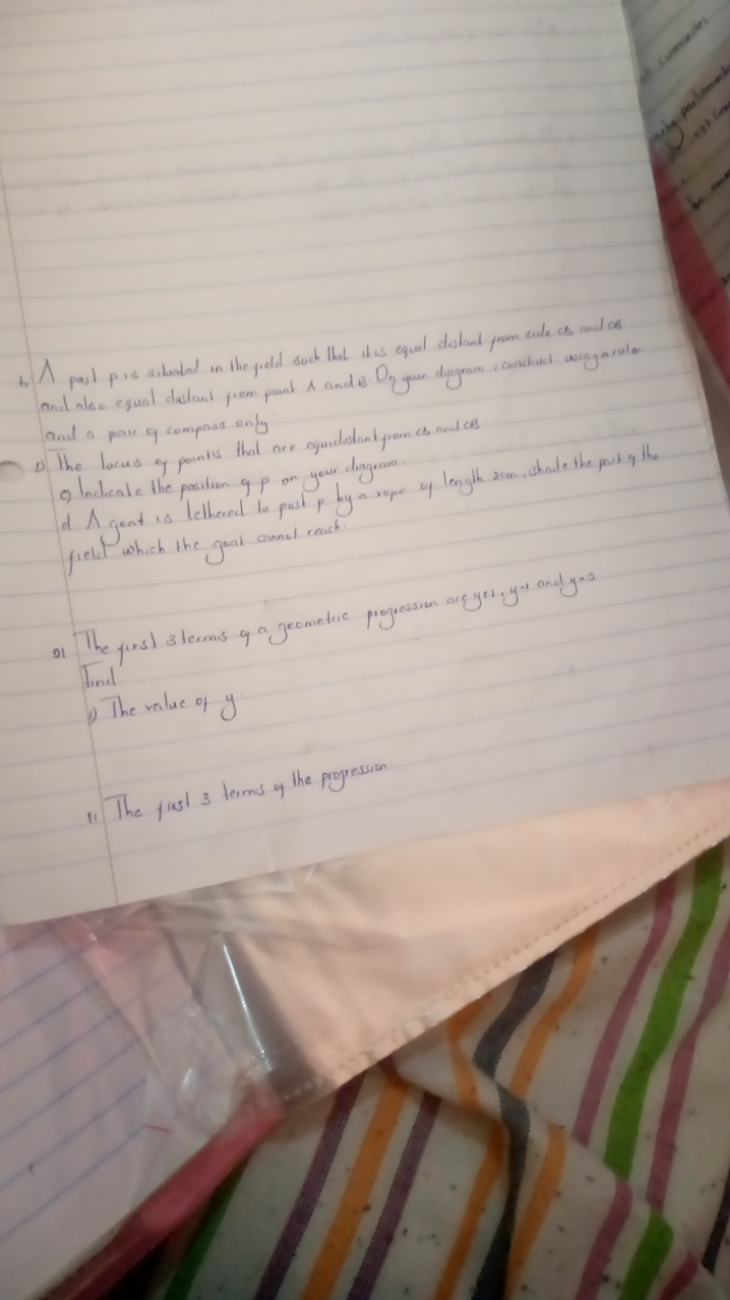 b) A post p is situated in the field such that it is equal distant from side cb and ce
and also equal distant from point A and B. On your diagram, construct using a ruler
and a pair of compass only
i) The locus of points that are equidistant from cb and ce.
c) Indicate the position of p on your diagram.
d. A goat is tethered to post p by a rope of length 2cm, shade the part of the
field which the goat cannot reach.
21 The first 3 terms of a geometric progression are y+1, y-1 and y-2
Find
i) The value of y.
ii The first 3 terms of the progression